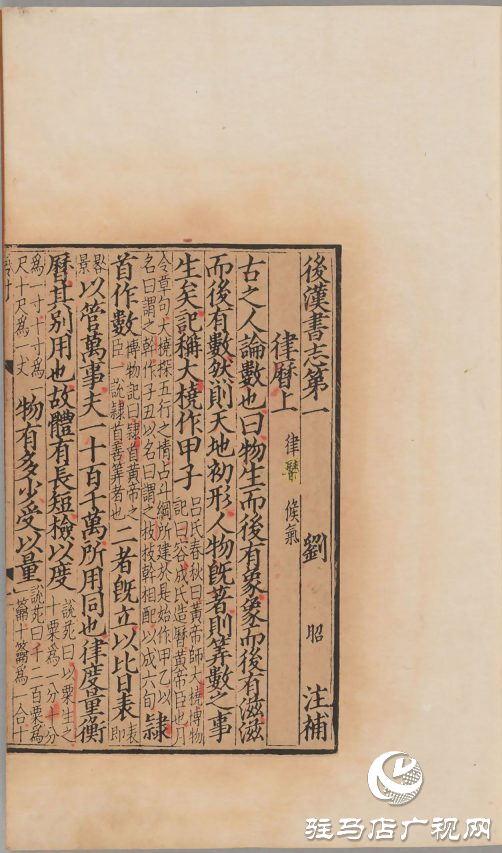 後漢書志第一 劉昭注補
律曆上 律 候氣
古之人論數也曰物生而後有象象而後有滋滋
而後有數然則天地初形人物旣著則筭數之事
生矣記稱大橈作甲子 呂氏春秋曰黃帝師大橈博物記曰容成氏造曆黃帝臣也月
令章句大橈探五行之情占斗綱所建於是始作甲乙以名日謂之幹作子丑以名日謂之枝枝幹相配以成六旬 隸
首作數 博物記曰隸首黃帝之臣一說隸首善筭者也 二者旣立以比日表 表即
晷景 以管萬事夫一十百千萬所用同也律度量衡
曆其別用也故體有長短檢以度 說苑曰以粟生之十粟爲一分十分
爲一寸十寸爲尺十尺爲一丈 物有多少受以量 說苑曰千二百粟爲一籥十籥爲一合十
驻马店广视网